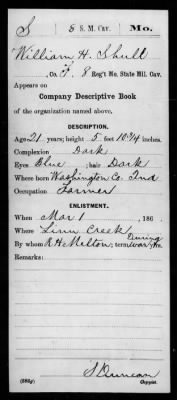 S | 8 S. M. Cav. | Mo.
William H. Shull
, Co. F, 8 Reg't Mo. State Mil. Cav.
Appears on
Company Descriptive Book
of the organization named above.
DESCRIPTION.
Age 21 years; height 5 feet 10 3/4 inches.
Complexion Dark
Eyes Blue ; hair Dark
Where born Washington Co. Ind
Occupation Farmer
ENLISTMENT.
When Mar 1 , 186 .
Where Linn Creek
By whom R H Melton ; term during war
Remarks:
S Duncan
(383g) Copyist.